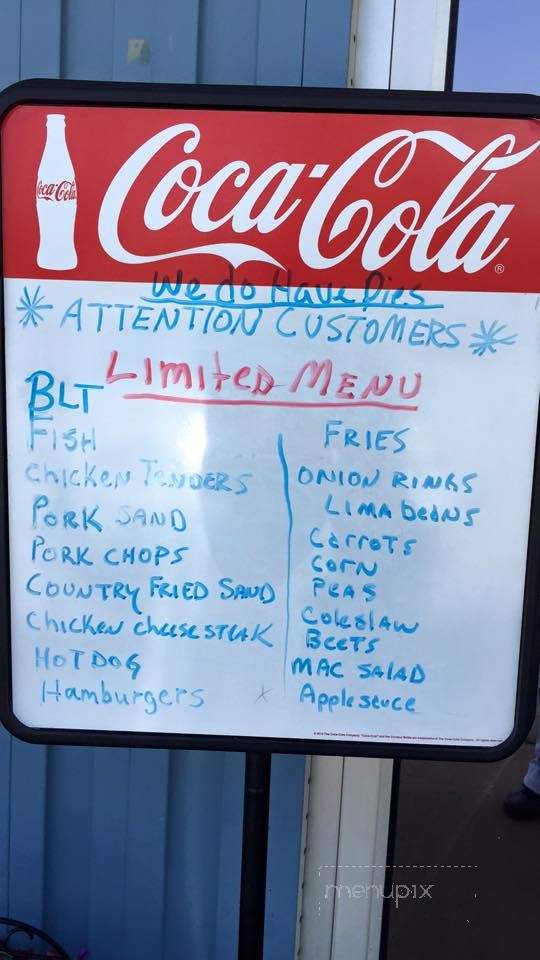 Coca-Cola
Coca-Cola®
We do Have Pies
ATTENTION CUSTOMERS
LIMITED MENU
BLT
FISH
Chicken Tenders
PORK SAND
PORK CHOPS
COUNTRY FRIED SAND
Chicken cheese STEAK
HOT DOG
Hamburgers
x
FRIES
ONION RINGS
LIMA beans
Carrots
CORN
Peas
Coleslaw
Beets
MAC SALAD
Apple sauce
menupix